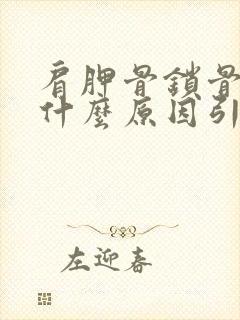 肩胛骨鎖骨
什麼原因引
左迎春